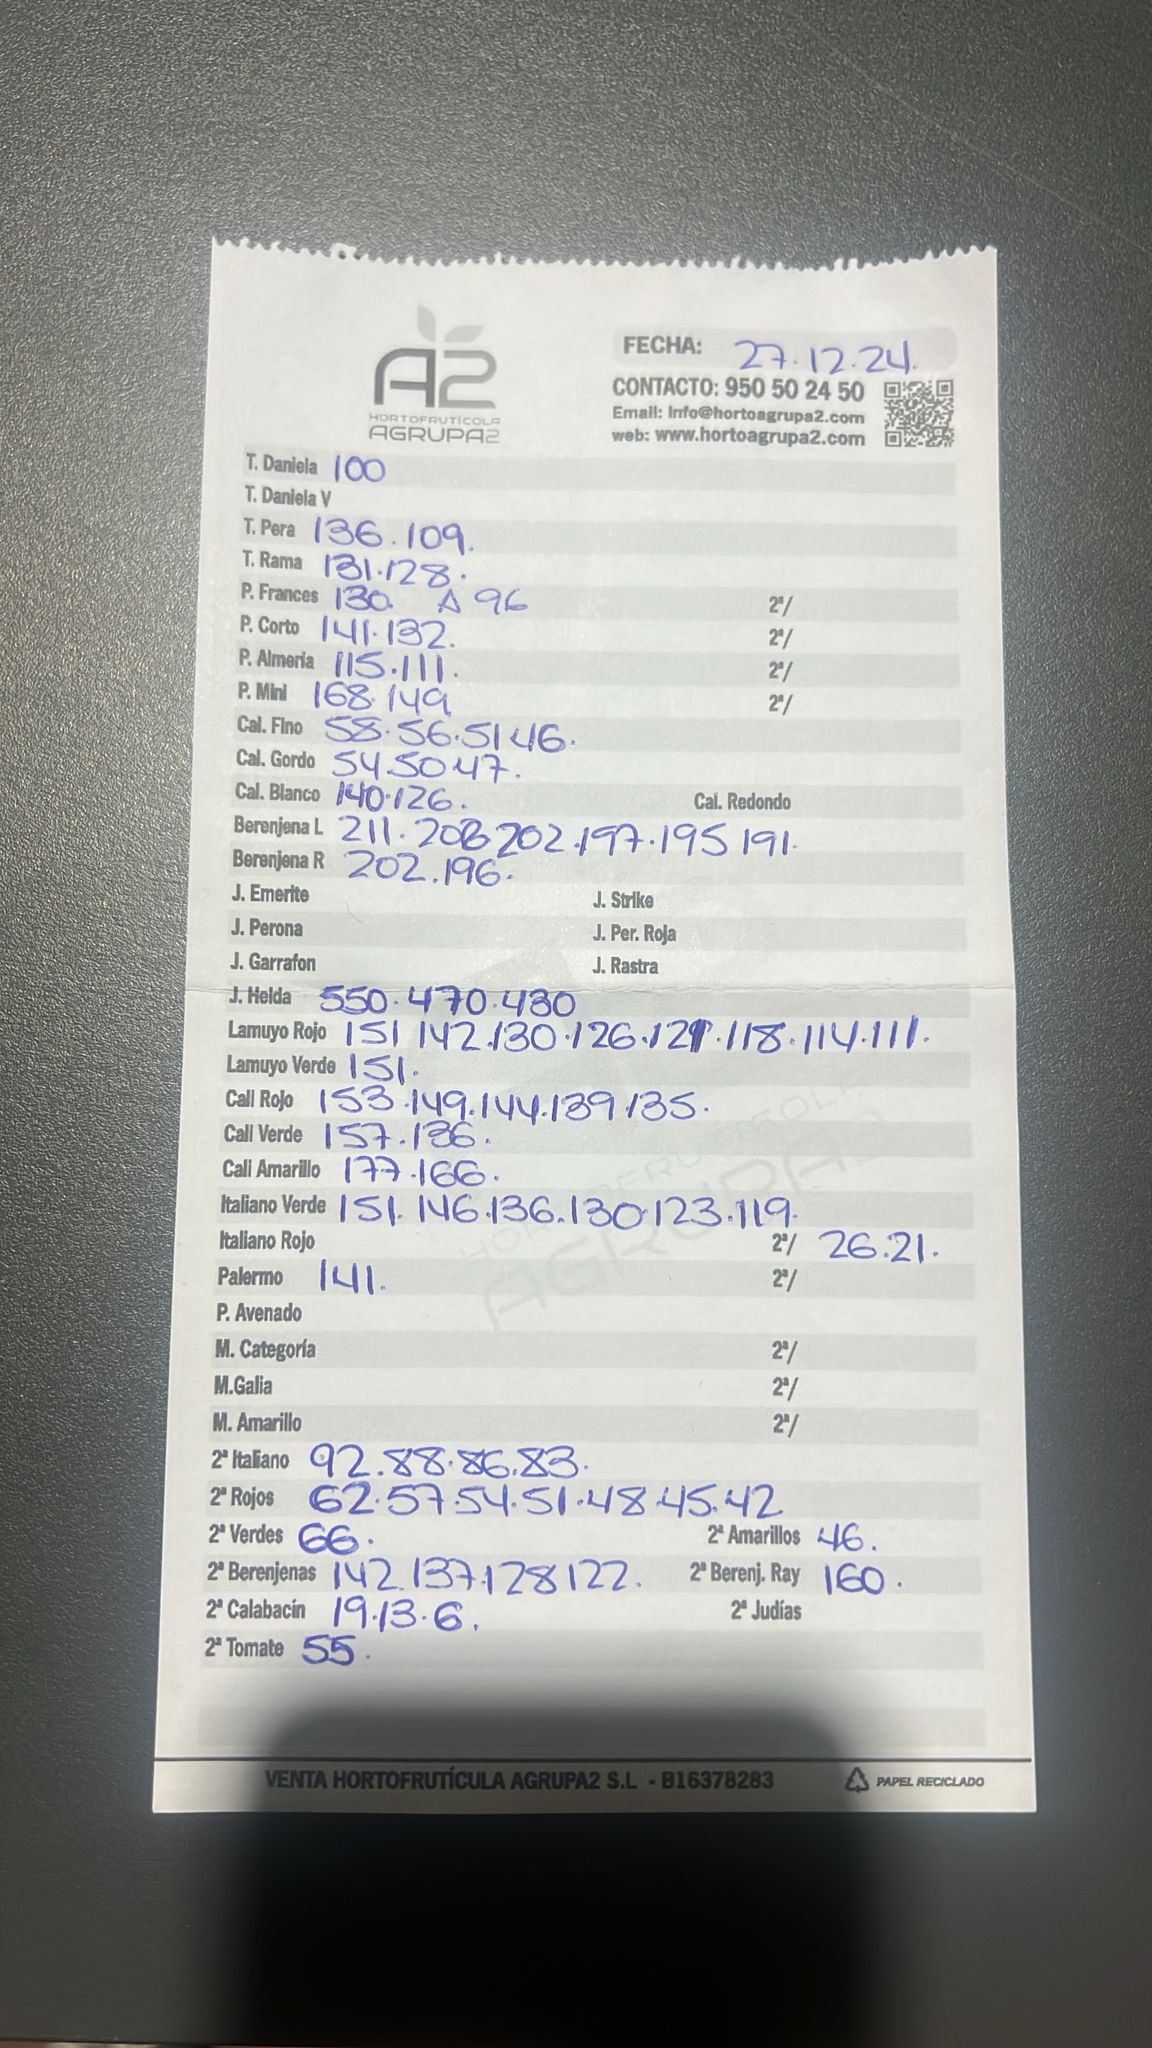 A2
HORTOFRUTÍCOLA
AGRUPA2
FECHA: 27.12.24.
CONTACTO: 950 50 24 50
Email: info@hortoagrupa2.com
web: www.hortoagrupa2.com
T. Daniela 100
T. Daniela V
T. Pera 136.109.
T. Rama 131.128.
P. Frances 130. A 96 2ª/
P. Corto 141.132. 2ª/
P. Almeria 115.111. 2ª/
P. Mini 168.149 2ª/
Cal. Fino 58.56.51.46.
Cal. Gordo 54.50.47.
Cal. Blanco 140.126. Cal. Redondo
Berenjena L 211.208 202.197.195 191.
Berenjena R 202.196.
J. Emerite J. Strike
J. Perona J. Per. Roja
J. Garrafon J. Rastra
J. Helda 550.470.430
Lamuyo Rojo 151 142.130.126.121.118.114.111.
Lamuyo Verde 151.
Cali Rojo 153.149.144.139.135.
Cali Verde 157.136.
Cali Amarillo 177.166.
Italiano Verde 151.146.136.130.123.119.
Italiano Rojo 2ª/ 26.21.
Palermo 141. 2ª/
P. Avenado
M. Categoría 2ª/
M.Galia 2ª/
M. Amarillo 2ª/
2ª Italiano 92.88.86.83.
2ª Rojos 62.57.54.51.48.45.42
2ª Verdes 66. 2ª Amarillos 46.
2ª Berenjenas 142.137.128 122. 2ª Berenj. Ray 160.
2ª Calabacín 19.13.6. 2ª Judías
2ª Tomate 55.
VENTA HORTOFRUTÍCULA AGRUPA2 S.L - B16378283 PAPEL RECICLADO